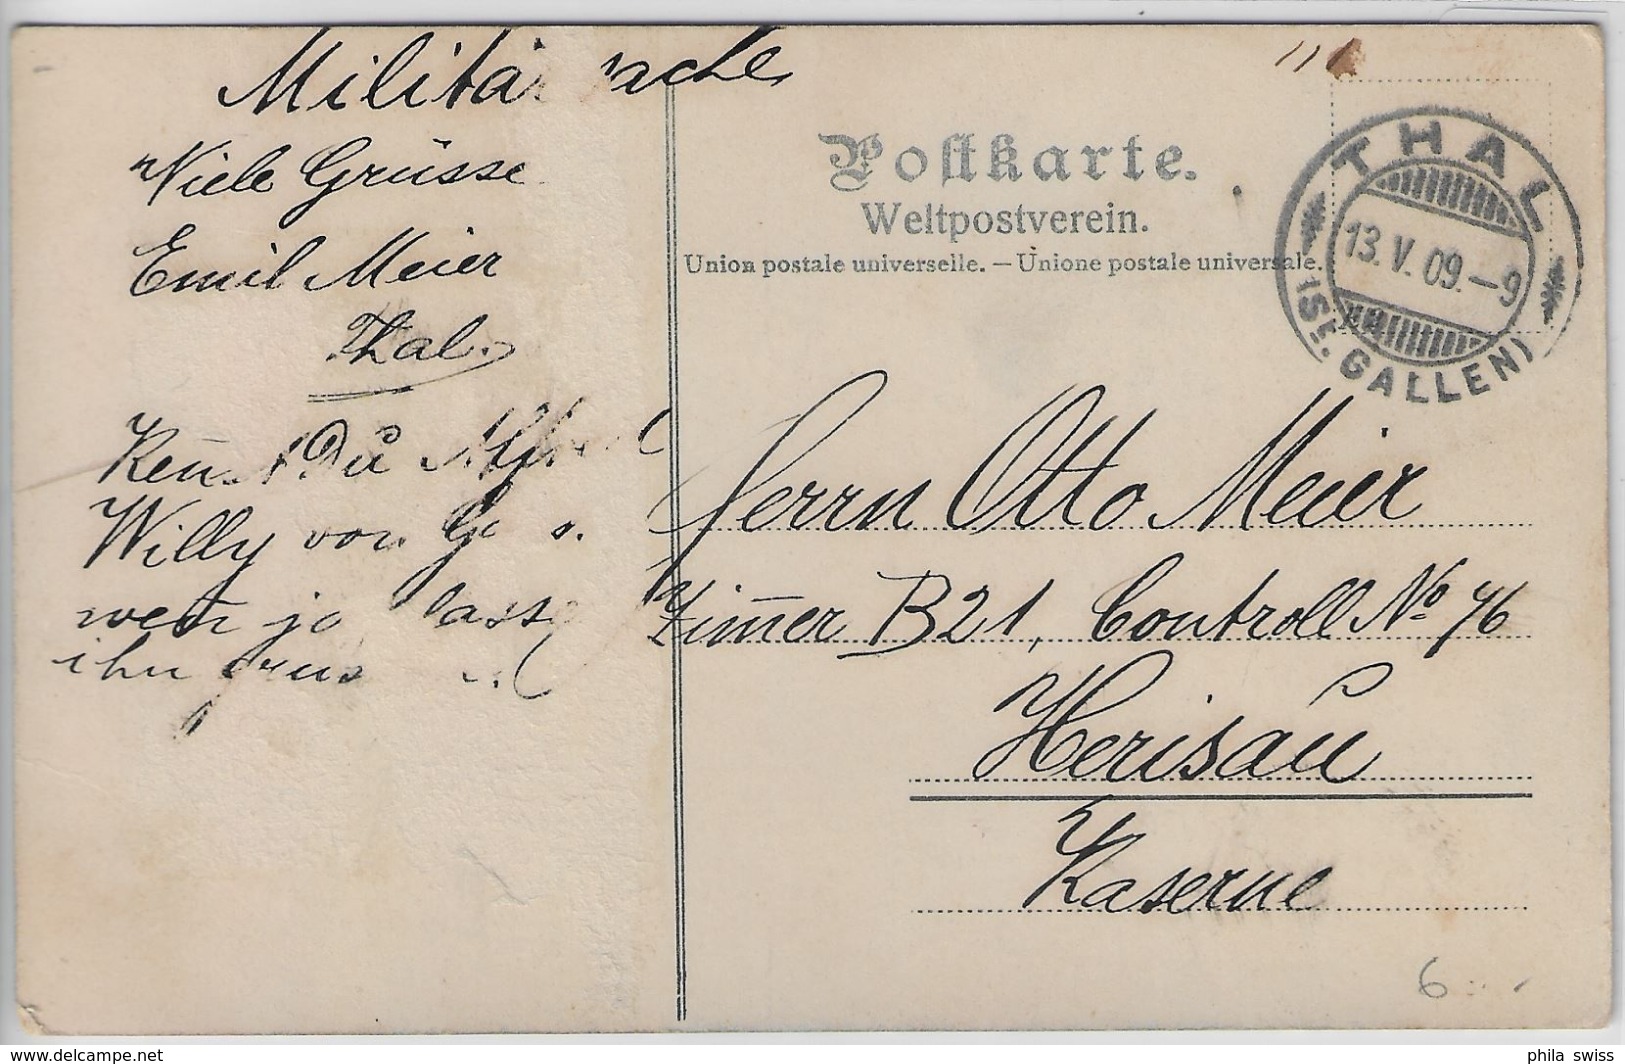 Viele Grüsse
Emil Meier
Thal.
Du
Willy von
ja
ihn
Postkarte.
Weltpostverein.
Union postale universelle. — Unione postale universale.
THAL
13. V. 09.—9
(St. GALLEN)
Herrn Otto Meier
Zim̅er B21, Controll No 76
Herisau
Kaserne
6
www.delcampe.net
phila swiss